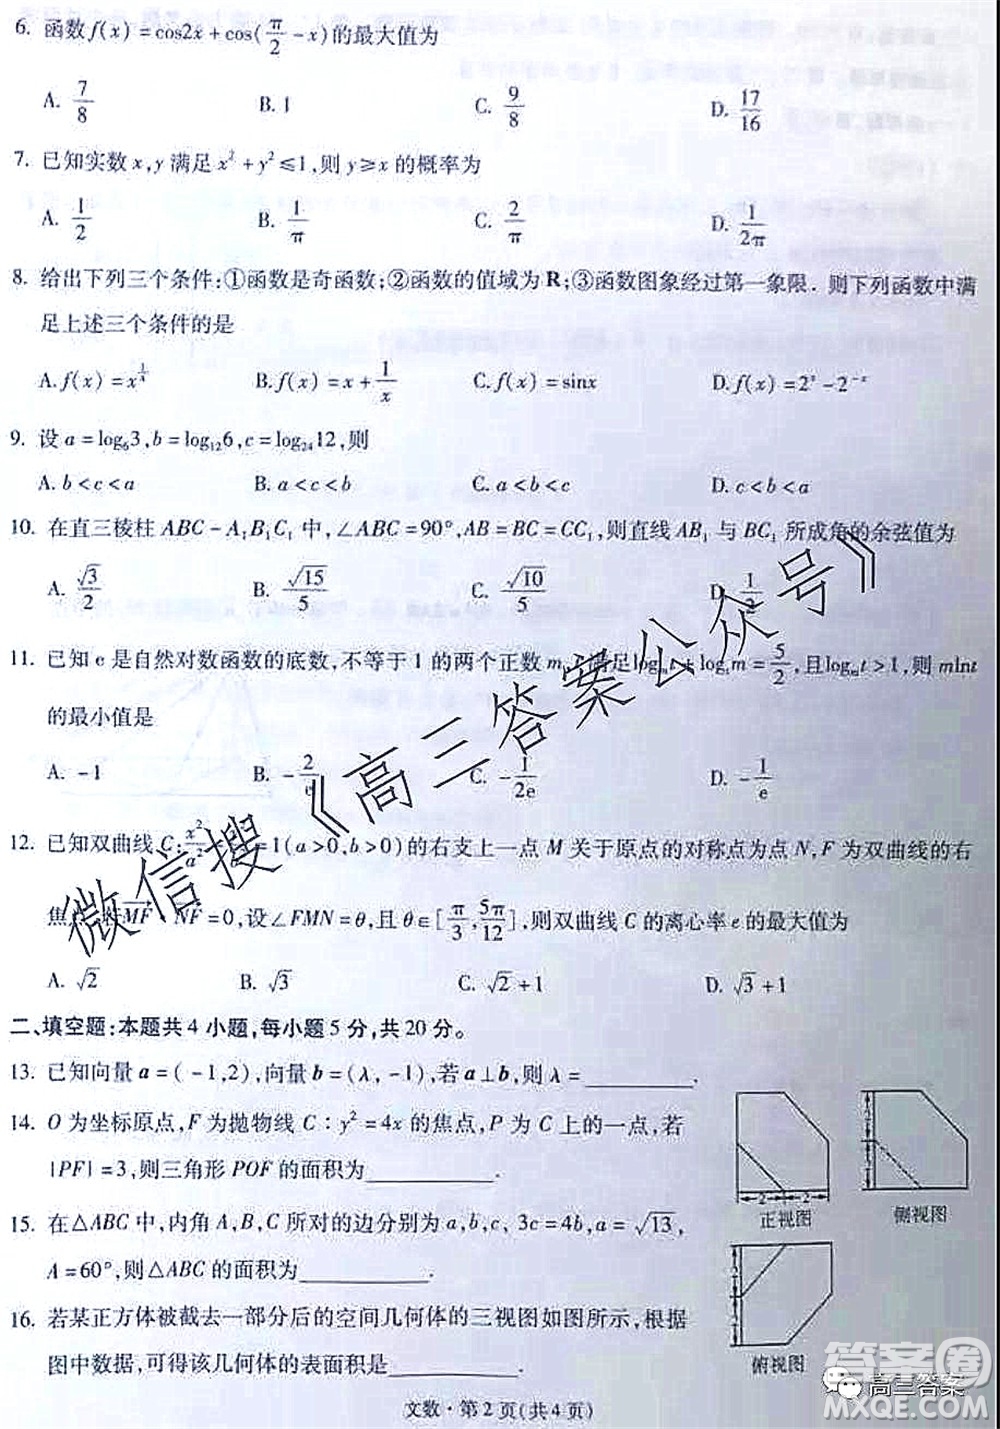 6. 函数 f(x) = cos2x + cos(π/2 - x) 的最大值为
A. 7/8 B. 1 C. 9/8 D. 17/16
7. 已知实数 x, y 满足 x² + y² ≤ 1, 则 y ≥ x 的概率为
A. 1/2 B. 1/π C. 2/π D. 1/2π
8. 给出下列三个条件:①函数是奇函数;②函数的值域为 R;③函数图象经过第一象限. 则下列函数中满
足上述三个条件的是
A. f(x) = x^(1/4) B. f(x) = x + 1/x C. f(x) = sinx D. f(x) = 2^x - 2^(-x)
9. 设 a = log₆3, b = log₁₂6, c = log₂₄12, 则
A. b < c < a B. a < c < b C. a < b < c D. c < b < a
10. 在直三棱柱 ABC - A₁B₁C₁ 中, ∠ABC = 90°, AB = BC = CC₁, 则直线 AB₁ 与 BC₁ 所成角的余弦值为
A. √3/2 B. √15/5 C. √10/5 D. 1/2
11. 已知 e 是自然对数函数的底数, 不等于 1 的两个正数 m, 满足 log t + log m = 5/2, 且 log t > 1, 则 mlnt
的最小值是
A. -1 B. -2/e C. -1/2e D. -1/e
12. 已知双曲线 C: x²/a² = 1(a > 0, b > 0) 的右支上一点 M 关于原点的对称点为点 N, F 为双曲线的右
焦点, MF · NF = 0, 设 ∠FMN = θ, 且 θ ∈ [π/3, 5π/12], 则双曲线 C 的离心率 e 的最大值为
A. √2 B. √3 C. √2 + 1 D. √3 + 1
二、填空题:本题共 4 小题,每小题 5 分,共 20 分。
13. 已知向量 a = (-1,2), 向量 b = (λ, -1), 若 a ⊥ b, 则 λ = ________.
14. O 为坐标原点, F 为抛物线 C : y² = 4x 的焦点, P 为 C 上的一点, 若
|PF| = 3, 则三角形 POF 的面积为 ________.
15. 在 △ABC 中, 内角 A, B, C 所对的边分别为 a, b, c, 3c = 4b, a = √13,
A = 60°, 则 △ABC 的面积为 ________.
16. 若某正方体被截去一部分后的空间几何体的三视图如图所示, 根据
图中数据, 可得该几何体的表面积是 ________.
2 2
正视图
2 2
侧视图
2 2
俯视图
文数 · 第 2 页(共 4 页)
微信搜《高三答案公众号》
答案圈
MXQE.COM
高三答案